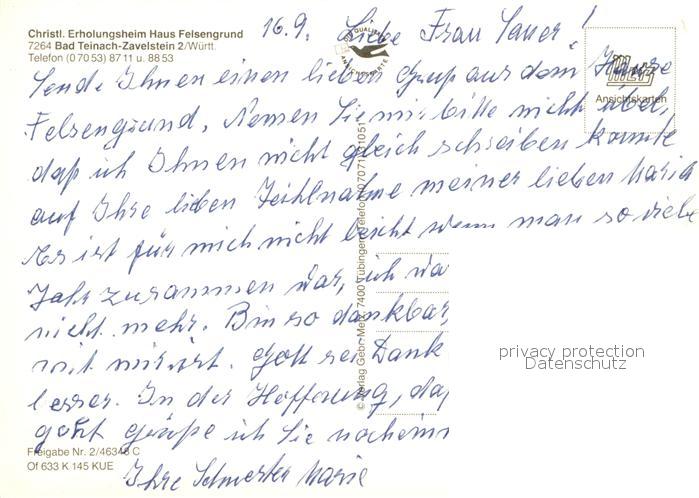 Christl. Erholungsheim Haus Felsengrund
7264 Bad Teinach-Zavelstein 2/Württ.
Telefon (0 70 53) 87 11 u. 88 53
16.9. Liebe Frau Sauer!
Sende Ihnen einen lieben Gruß aus dem Hause
Felsengrund. Nemen Sie mir bitte nicht übel,
daß ich Ihnen nicht gleich schreiben konnte
auf Ihre lieben Teihlnahme meiner lieben Maria
Es ist für mich nicht leicht wenn man so viele
Jahr zusammen war, ich wa
nicht mehr. Bin so dankbar,
mit mir ist. Gott sei Dank
In der Hoffnung, daß
geht grüße ich Sie nocheinm
Ihre Schwester Marie
QUALITÄT
ANSICHTSKARTE
METZ
Ansichtskarten
© Verlag Gebr. Metz, 7400 Tübingen, Telefon (07071) 31051
privacy protection
Datenschutz
Freigabe Nr. 2/46348 C
Of 633 K 145 KUE